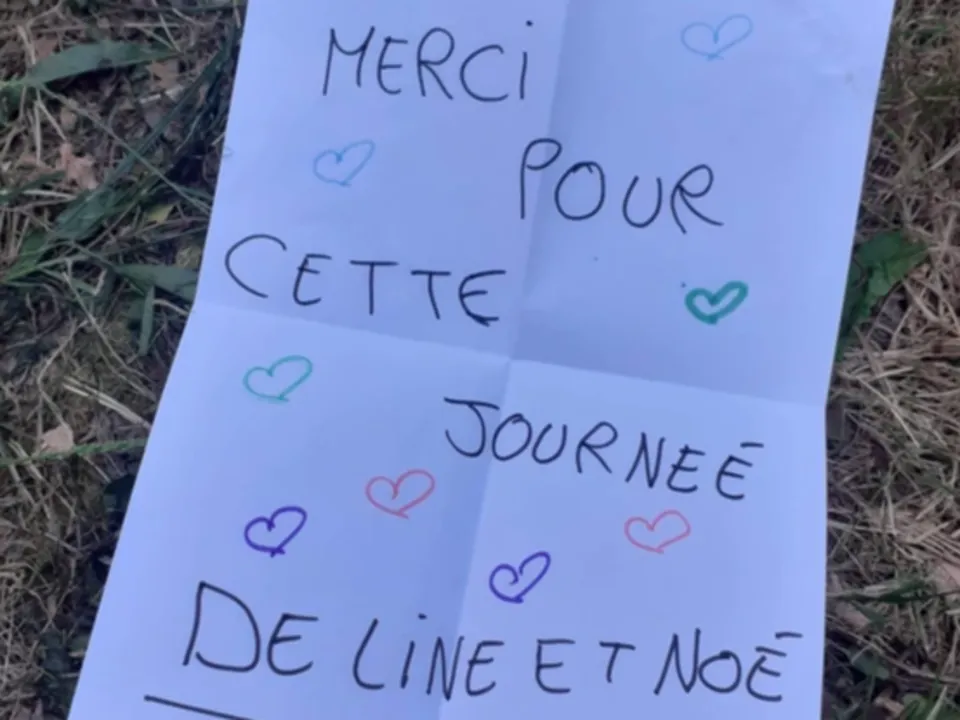 MERCi
POUR
CETTE
JOURNEÉ
DE LiNE ET NOÉ